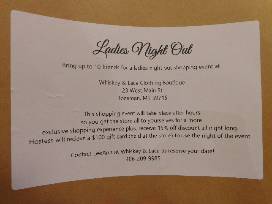 Ladies Night Out
Bring up to 10 friends for a ladies night out shopping event at
Whiskey & Lace Clothing Boutique
23 West Main St
Bozeman, MT 59715
This shopping event will take place after hours
so you get the store all to yourselves for a more
exclusive shopping experience plus, receive 15% off discount all night long.
Hostess will receive a $100 gift card the at the store to use the night of the event
Contact Whiskey & Lace to reserve your date!
406 209 9985